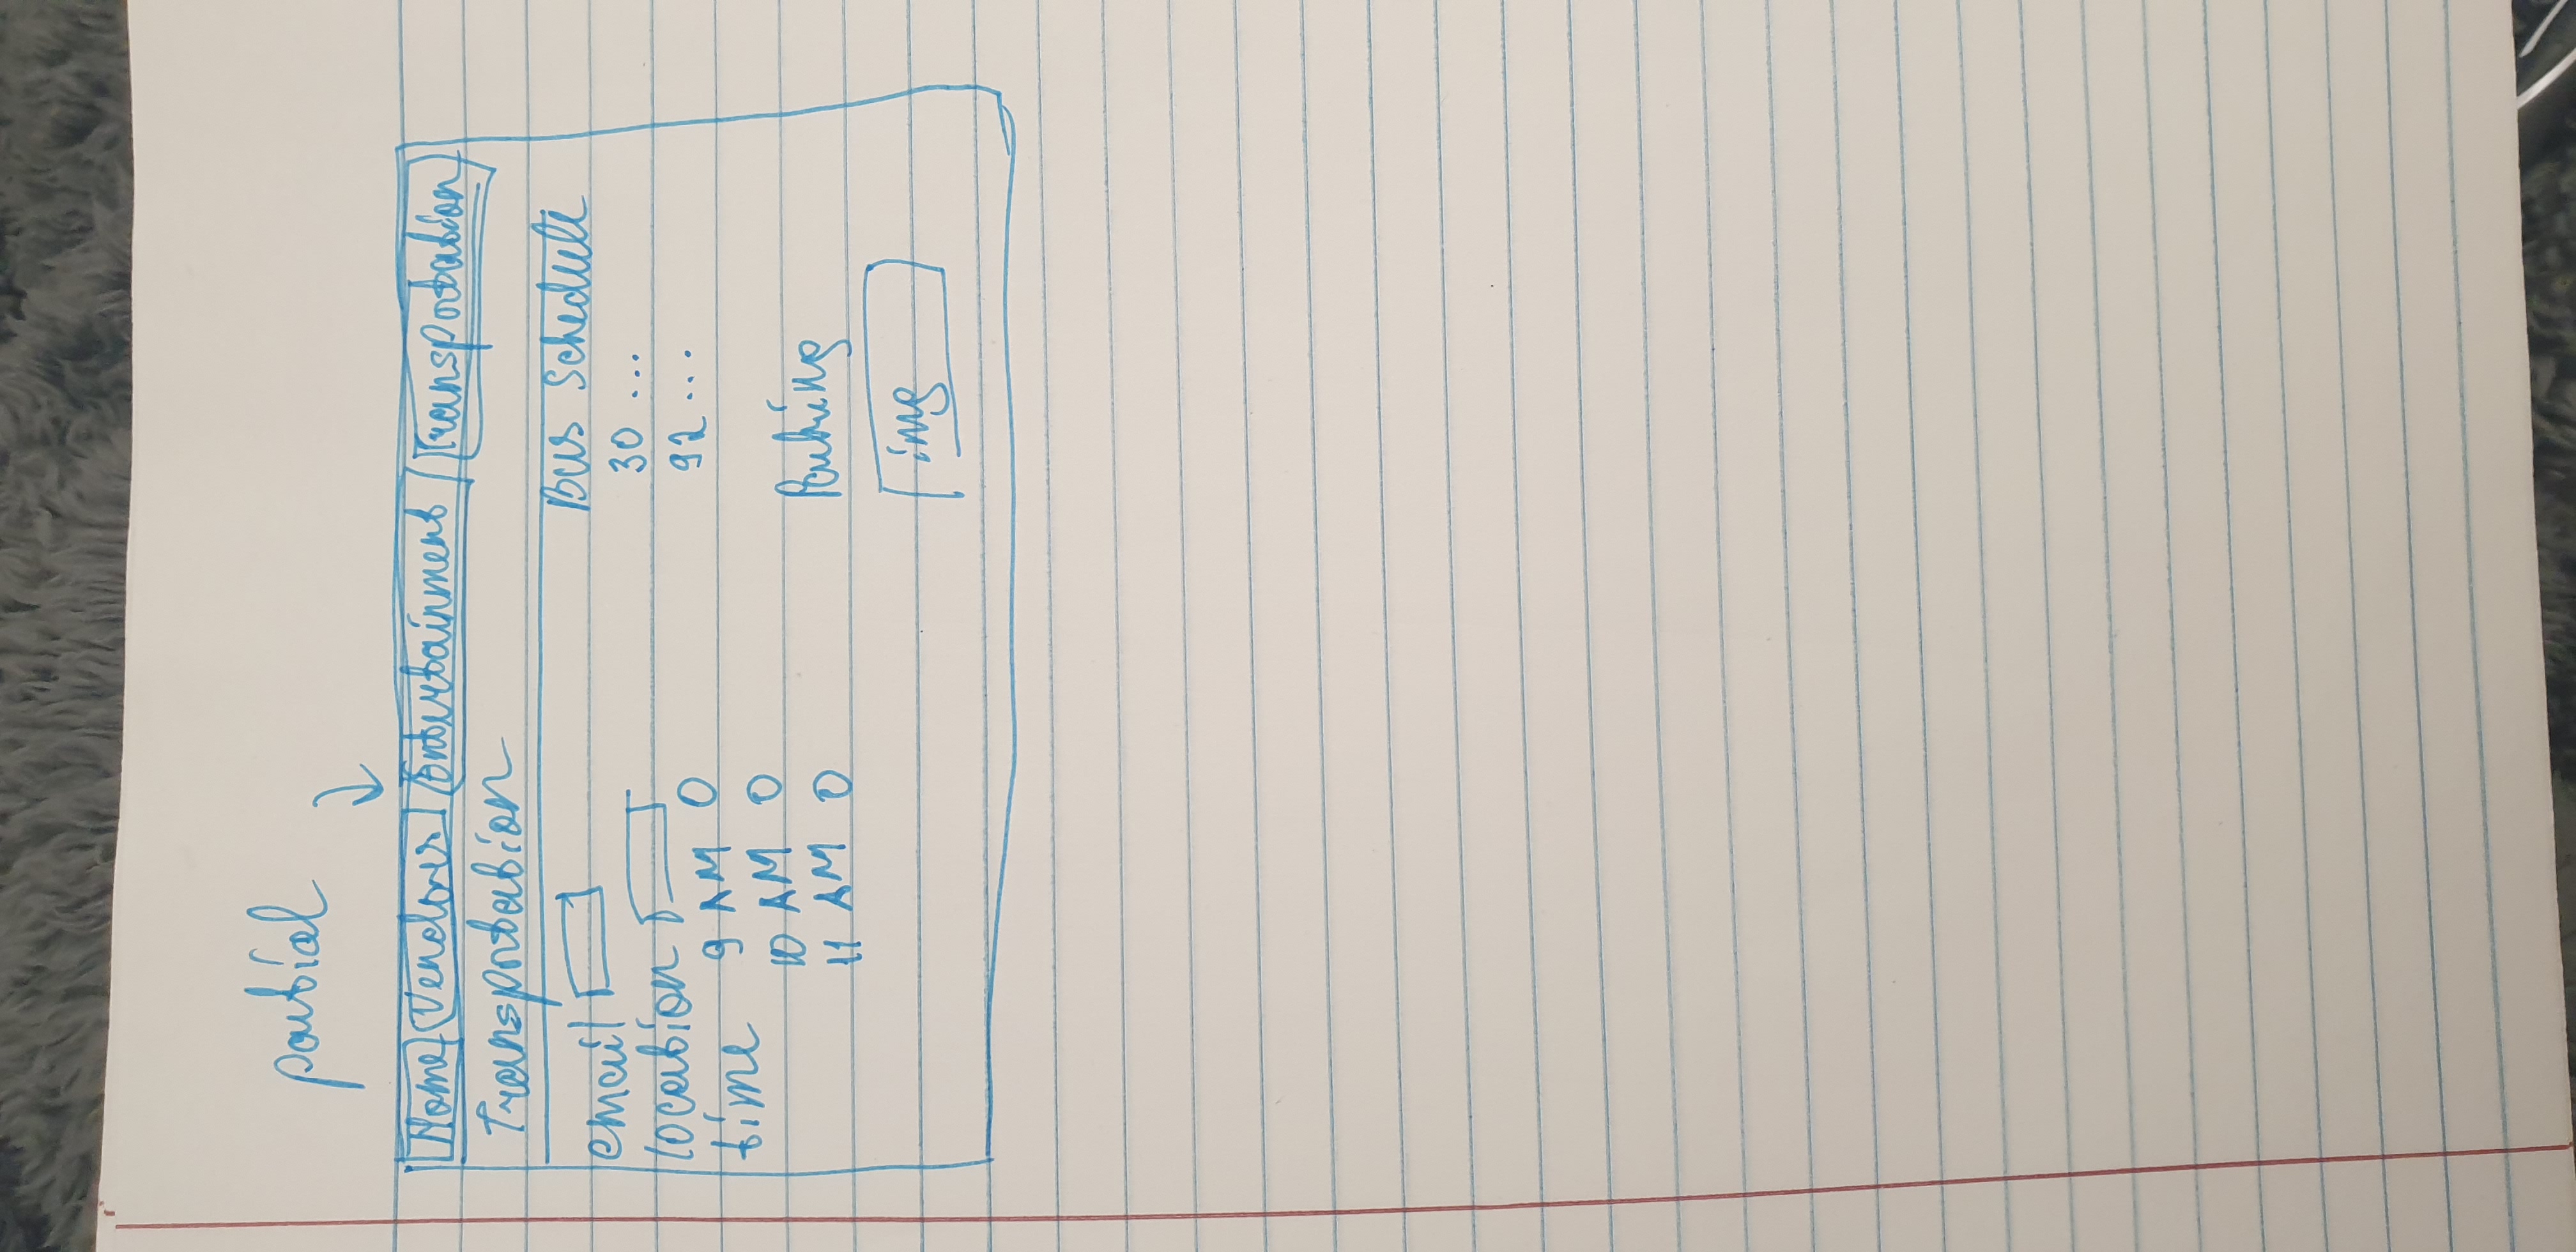 partial
Home Vendors Entertainment Transportation
Transportation
email
location
time 9 AM
10 AM
11 AM
Bus Schedule
30 ...
92 ...
Parking
img